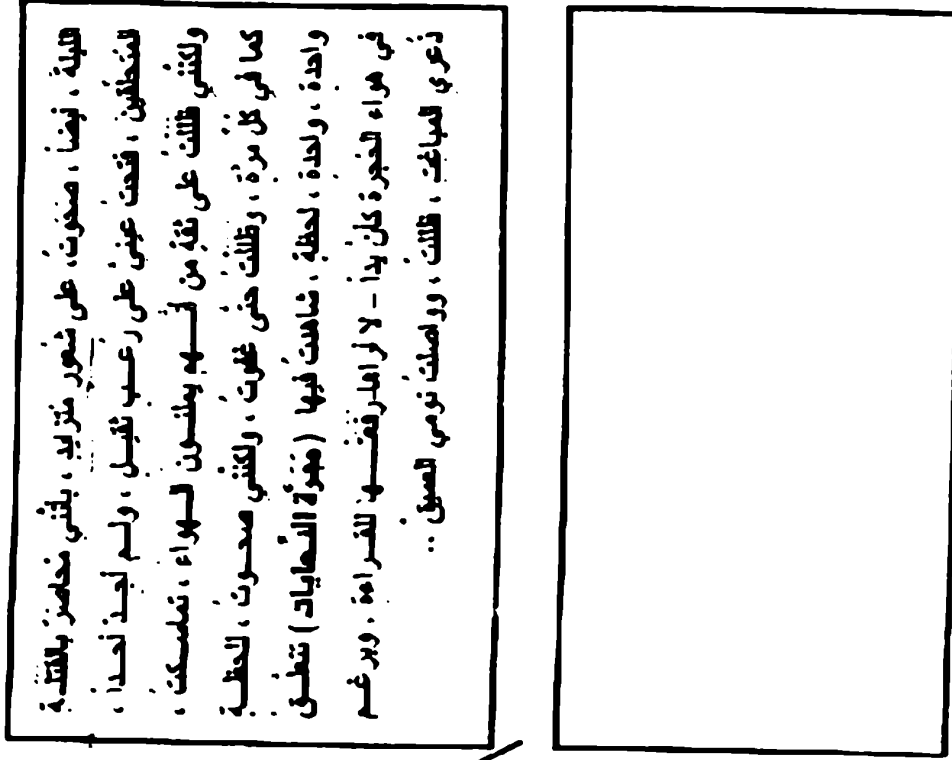 الليلة ، أيضاً ، صحوت ، على شعور متزايد ، بأنني محاصر بالقتلة
المتحلقين ، فتحت عيني على رعب ثقيل ، ولم أجد أحداً ،
ولكنني ظللت على ثقة من أنهم يملئون الهواء ، تماسكت ،
كما في كل مرة ، وظللت حتى غفوت ، ولكنني صحوت ، للحظة
واحدة ، واحدة ، لحظة ، شاهدت فيها (مَجَرَّة النّهايات) تتعلق
في هواء الحجرة كأن يداً - لا أراها رفعتها للقراءة ، وبرغم
ذعري المباغت ، ظللت ، وواصلت نومي العميق ..